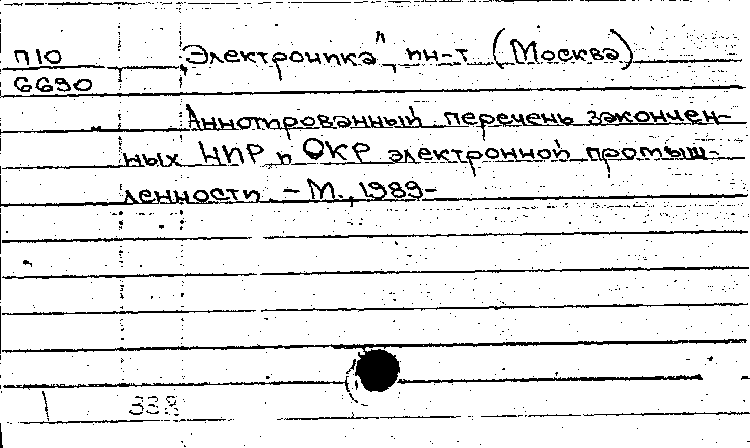 П10 „Электроника", ин-т (Москва)
6690
Аннотированный перечень закончен-
ных НИР и ОКР электронной промыш-
ленности. – М., 1989–
338